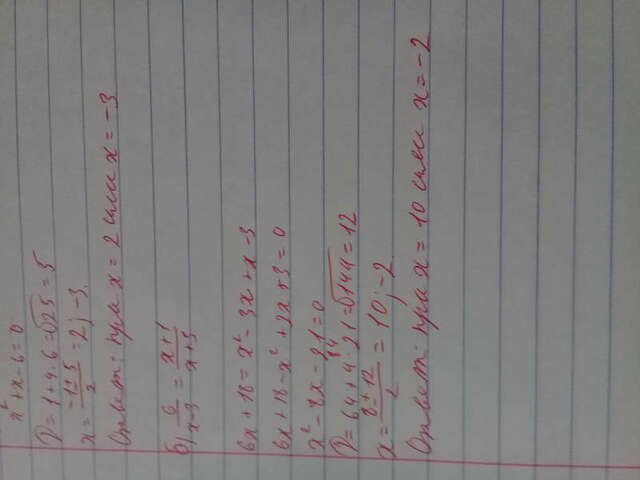 x² + x - 6 = 0
D = 1 + 4 · 6 = √25 = 5
x = (-1 ± 5)/2 = 2; -3.
Ответ: при x = 2 или x = -3
б) 6/(x-3) = (x+1)/(x+3)
6x + 18 = x² - 3x + x - 3
6x + 18 - x² + 2x + 3 = 0
x² - 8x - 21 = 0
84
D = 64 + 4 · 21 = √144 = 12
x = (8 ± 12)/2 = 10; -2.
Ответ: при x = 10 или x = -2